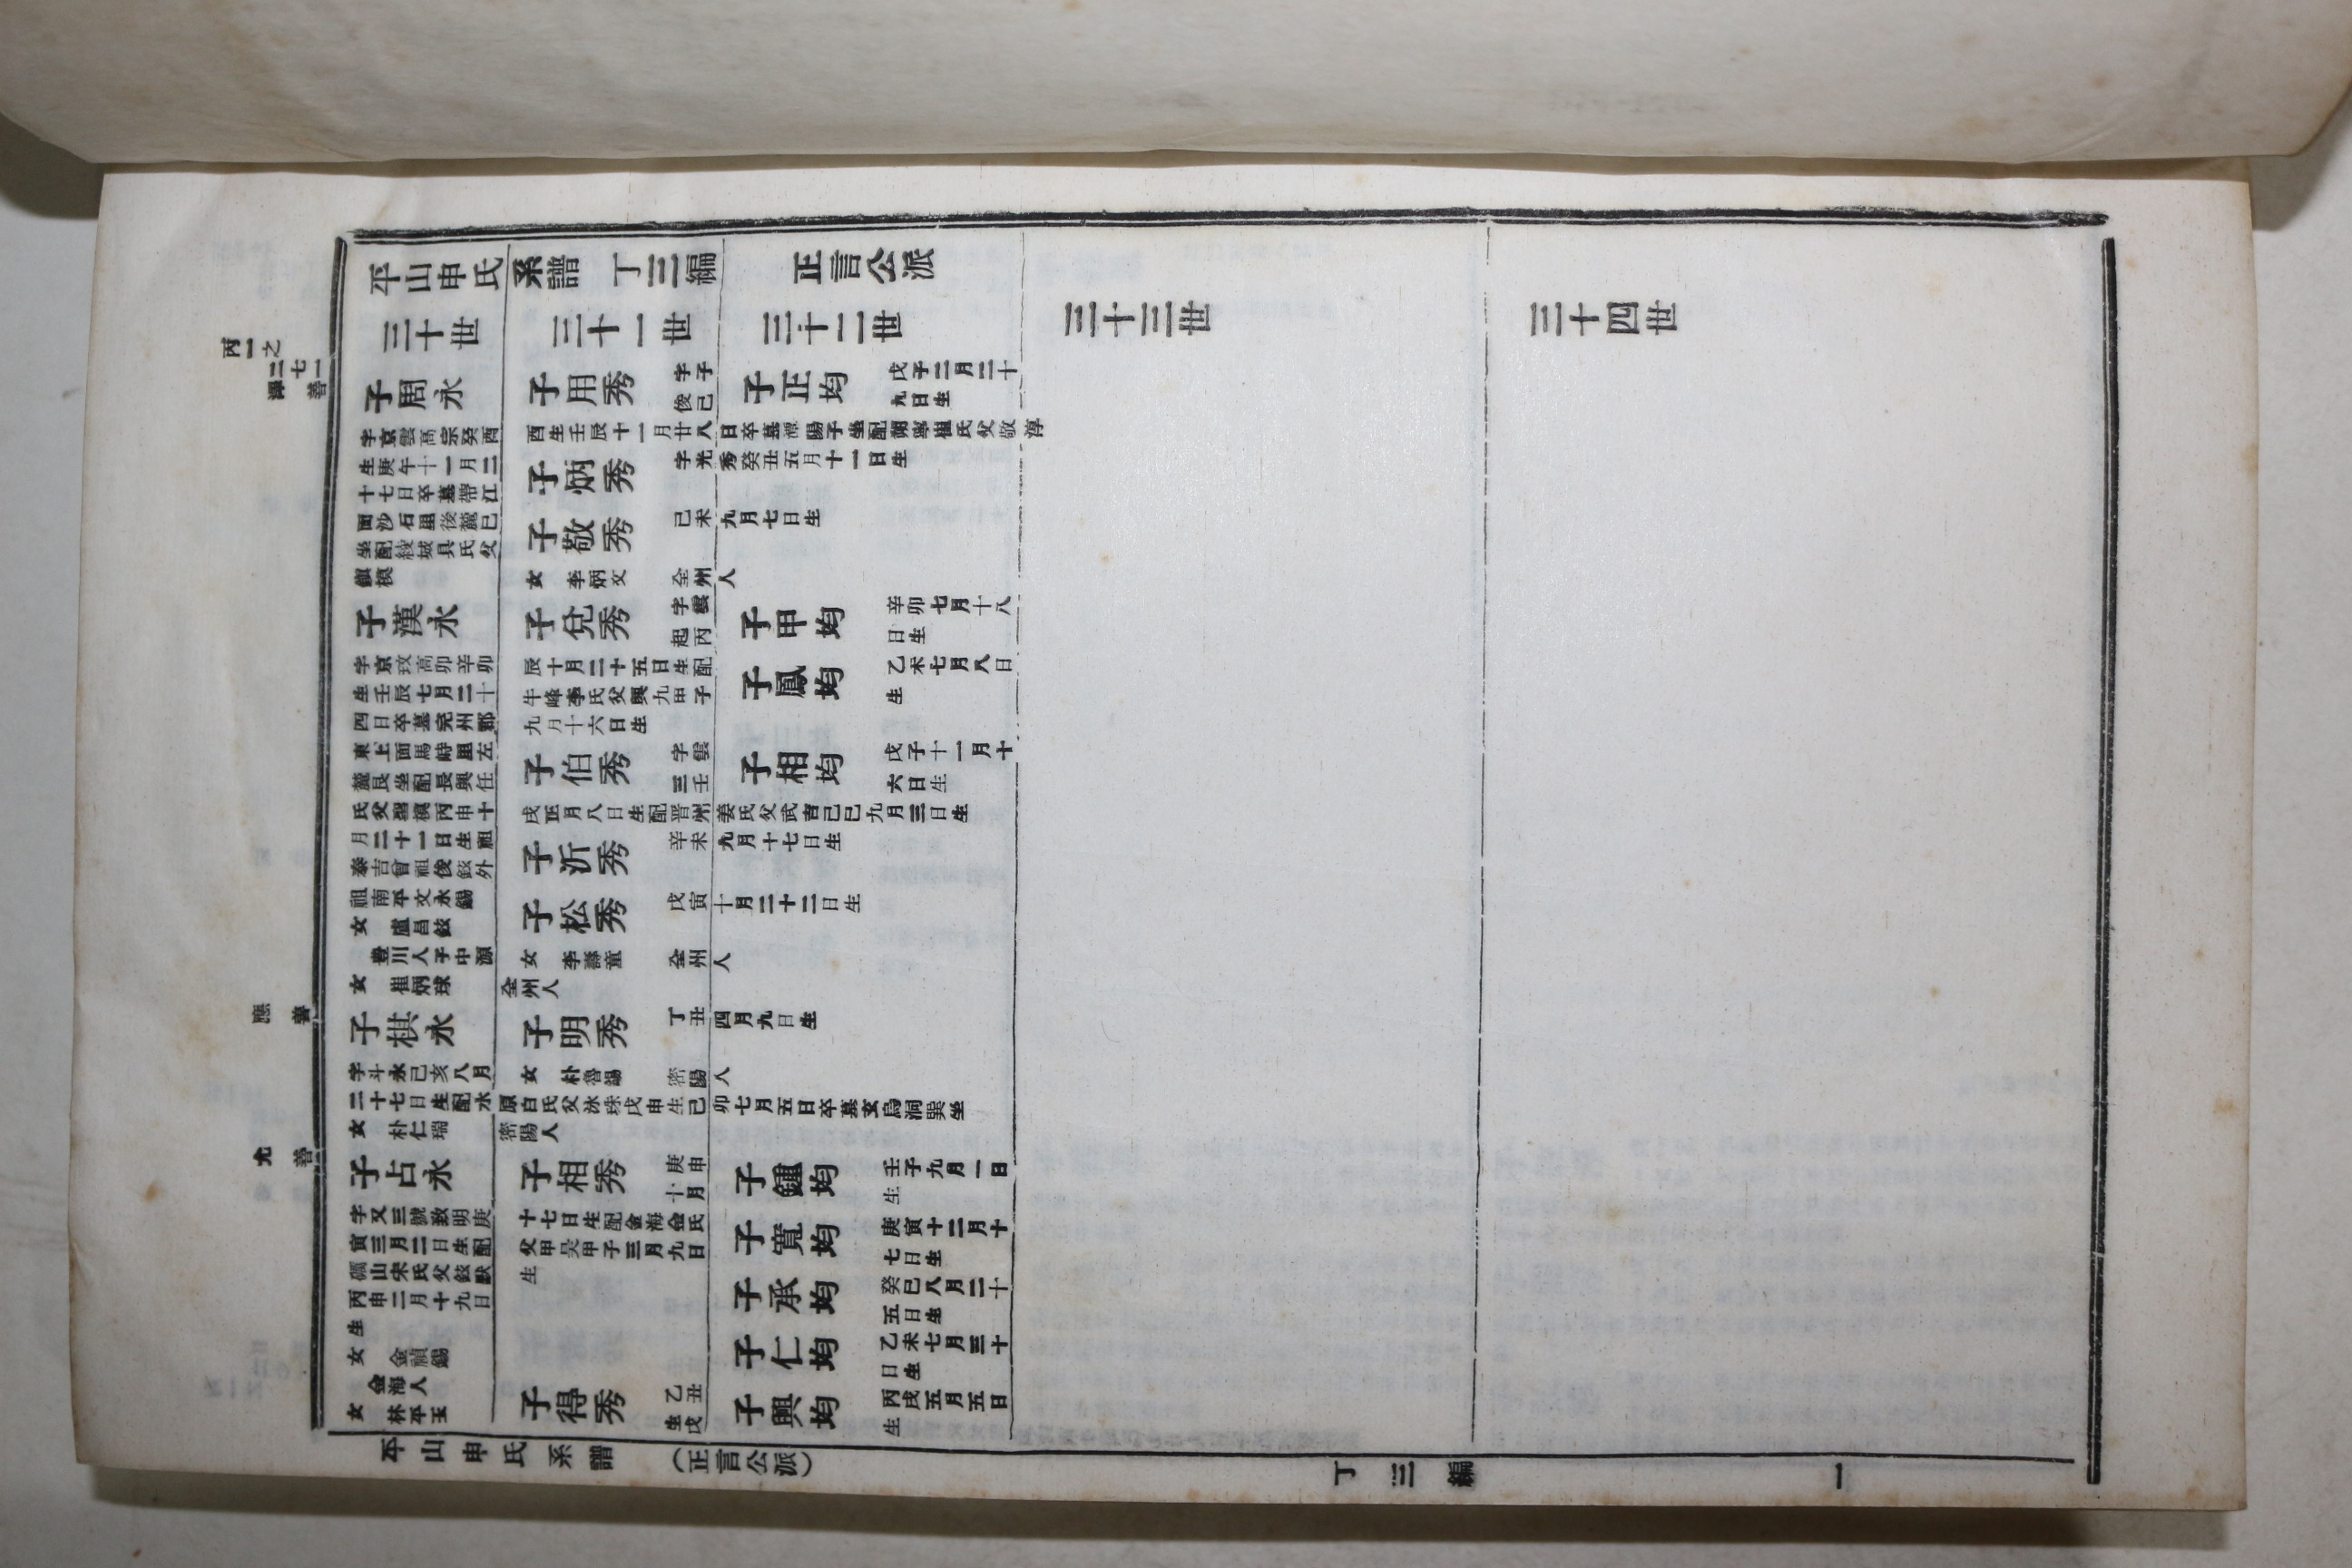 平山申氏系譜 丁三編 正言公派
丙一之
二七一
澤善
應善
尤善
三十世
三十一世
三十二世
三十三世
三十四世
子周永
字京雲高宗癸酉
生庚午十一月二
十七日卒墓帶江
面沙石里後麓巳
坐配綾城具氏父
鎭模
子漢永
字京玟高卯辛卯
生壬辰七月二十
四日卒墓完州郡
東上面馬峙里左
麓艮坐配長興任
氏父聖模丙申十
月二十一日生祖
泰吉曾祖俊鉉外
祖南平文永錫
女 盧昌鉉
豊川人子中源
女 崔炳球
全州人
子棋永
字斗永己亥八月
二十七日生配水原白氏父泳珠戊申生己卯七月五日卒墓玄烏洞巽坐
女 朴仁瑞
密陽人
子占永
字又三號致明庚
寅三月二日生配
礪山宋氏父鉉默
丙申二月十九日
生
女 金禎錫
金海人
女 林平玉
子用秀
字子
俊己
酉生壬辰十一月廿八日卒墓潭陽子坐配朔寧崔氏父敬淳
子炳秀
字光秀癸丑五月十一日生
子敬秀
己未九月七日生
女 李炳文
全州人
子兌秀
字雲
起丙
辰十月二十五日生配
牛峰李氏父興九甲子
九月十六日生
子伯秀
字雲
三壬
戌正月八日生配晋州姜氏父武吉己巳九月三日生
子沂秀
辛未九月十七日生
子松秀
戊寅十月二十二日生
女 李壽童
全州人
子明秀
丁丑四月九日生
女 朴魯錫
密陽人
子相秀
庚申
十月
十七日生配金海金氏
父甲吴甲子三月九日
生
子得秀
乙丑
生戊
子正均
戊子二月二十
九日生
子甲均
辛卯七月十八
日生
子鳳均
乙未七月八日
生
子相均
戊子十一月十
六日生
子鍾均
壬子九月一日
生
子寬均
庚寅十二月十
七日生
子承均
癸巳八月二十
五日生
子仁均
乙未七月三十
日生
子興均
丙戌五月五日
生
平山申氏系譜 （正言公派） 丁三編 一